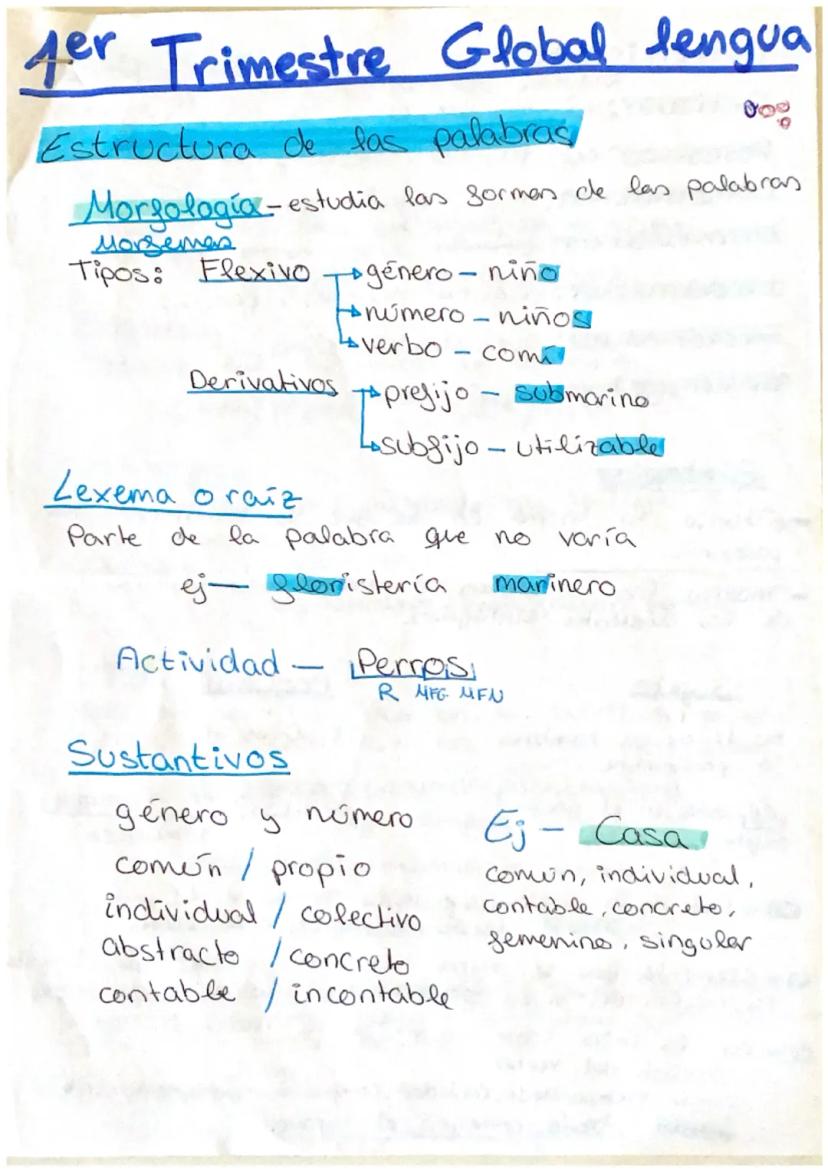 1er Trimestre Global lengua
Estructura de las palabras
Morfología - estudia las formas de las palabras
Morfemas
Tipos: Flexivo género - niño
número - niños
verbo - comí
Derivativos prefijo - submarino
subfijo - utilizable
Lexema o raíz
Parte de la palabra que no varía
ej - floristería marinero
Actividad - Perros
R MFG MFN
Sustantivos
género y número
común / propio
individual / colectivo
abstracto / concreto
contable / incontable
Ej - Casa
común, individual,
contable, concreto,
femenino, singular